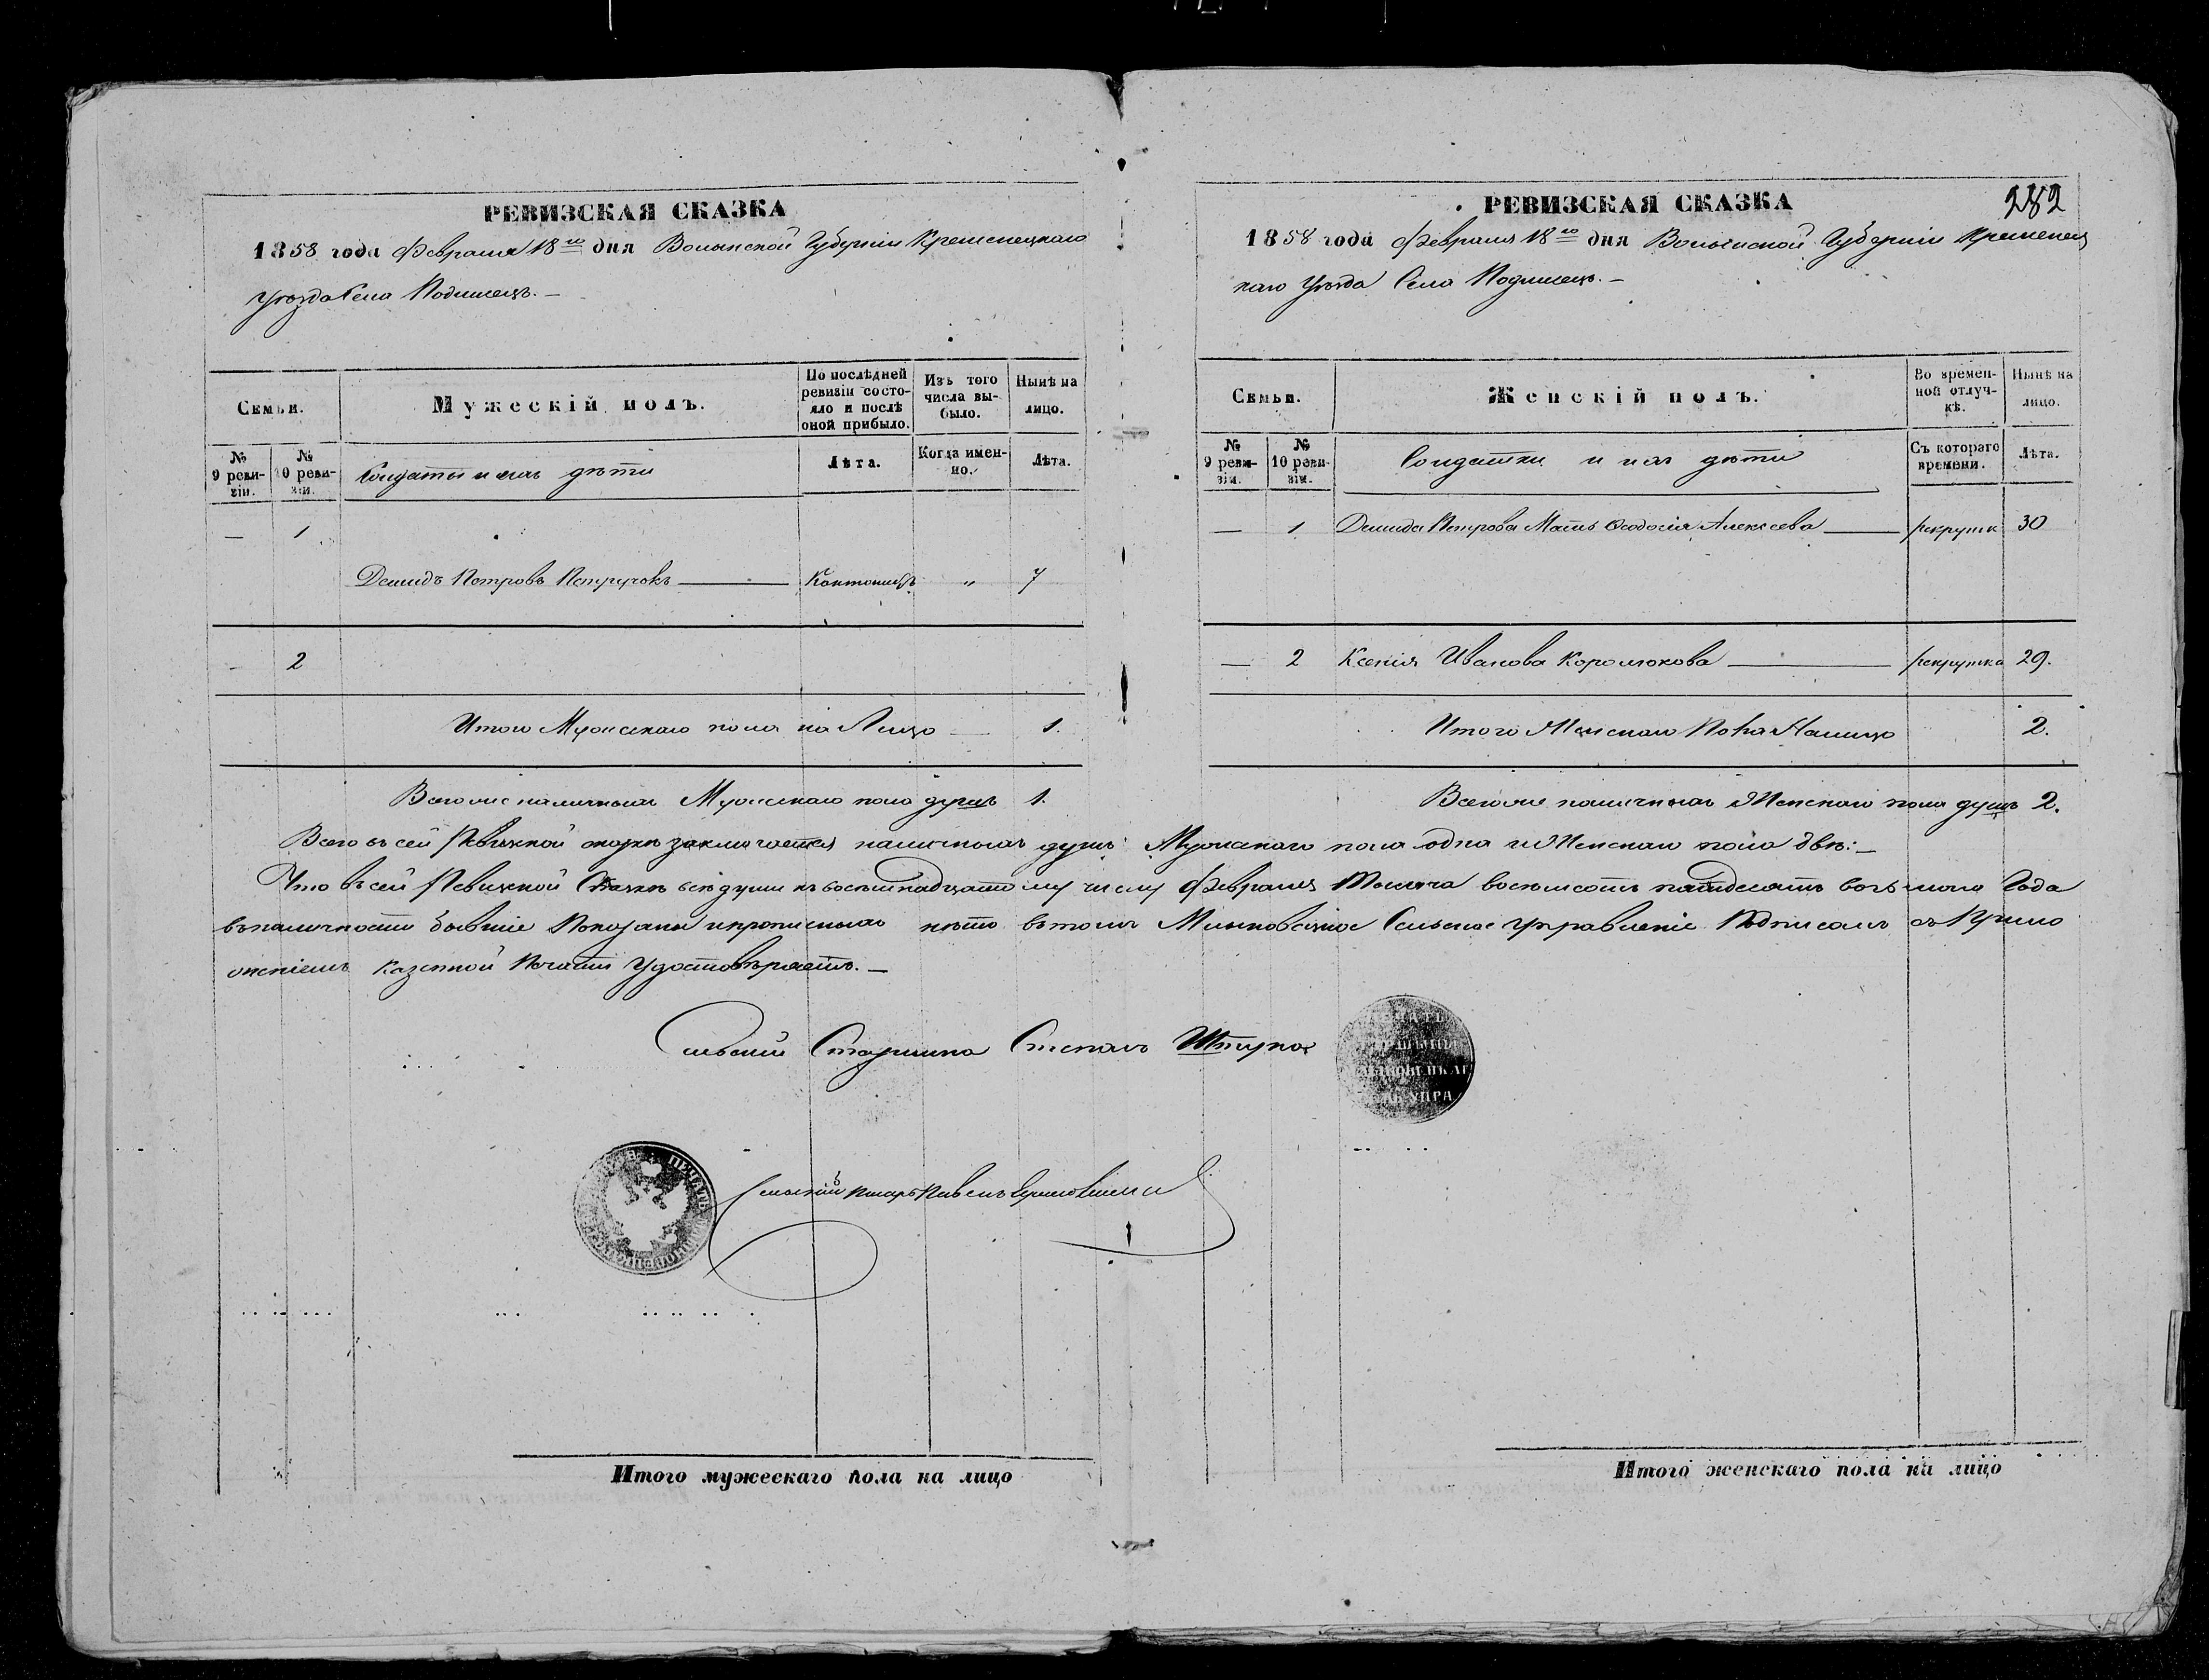 282
РЕВИЗСКАЯ СКАЗКА
1858 года Февраля 18го дня Волынской Губерніи Кременецкаго
Уѣзда Села Подлисецъ. —
Семьи.
Мужескій полъ.
По послѣдней ревизіи состояло и послѣ оной прибыло.
Изъ того числа выбыло.
Нынѣ на лицо.
№ 9 ревизіи.
№ 10 ревизіи.
Солдаты и ихъ дѣти
Лѣта.
Когда именно.
Лѣта.
— 1
Демидъ Петровъ Петручокъ — Кантонистъ „ 7
— 2
Итого Мужескаго пола на Лицо — 1.
Всего же наличныхъ Мужескаго пола душъ 1.
РЕВИЗСКАЯ СКАЗКА
1858 года Февраля 18го дня Волынской Губерніи Кременец
каго Уѣзда Села Подлисецъ. —
Семьи.
Женскій полъ.
Во временной отлучкѣ.
Нынѣ на лицо.
№ 9 ревизіи.
№ 10 ревизіи.
Солдатки и ихъ дѣти
Съ котораго времени.
Лѣта.
— 1 Демида Петрова Мать Феодосія Алексѣева — рекрутк 30
— 2 Ксенія Иванова Королюкова — рекрутка 29.
Итого Женскаго Пола Налицо 2.
Всего же наличныхъ Женскаго пола душъ 2.
Всего въ сей Ревизкой сказкѣ заключается наличныхъ душъ: Мужескаго пола одна и Женскаго пола двѣ: —
Что въ сей Ревизкой Сказкѣ всѣ души къ восемнадцатому числу Февраля Тысяча восемсотъ пятдесятъ восьмого Года
въ наличности бывшіе Показаны и прописныхъ нѣтъ въ томъ Сельское Управленіе Подписомъ съ Прило
женіемъ Казенной Печати Удостовѣряетъ. —
Сельскій Старшина Степанъ
Сельскій писарь Павелъ
Итого мужескаго пола на лицо
Итого женскаго пола на лицо